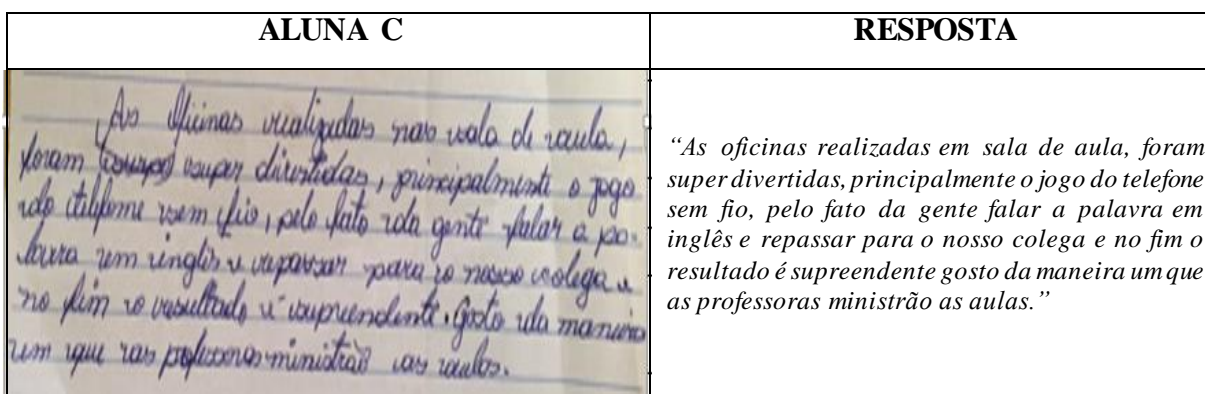 ALUNA C
RESPOSTA
As Oficinas realizadas nas sala de aula,
foram super divertidas, principalmente o jogo
do telefone sem fio, pelo fato da gente falar a pa-
lavra em inglês e repassar para o nosso colega e
no fim o resultado é supreendente. Gosto da maneira
em que as professoras ministrão as aulas.
“As oficinas realizadas em sala de aula, foram
super divertidas, principalmente o jogo do telefone
sem fio, pelo fato da gente falar a palavra em
inglês e repassar para o nosso colega e no fim o
resultado é supreendente gosto da maneira um que
as professoras ministrão as aulas.”